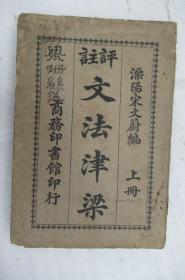 溧陽宋文蔚編
上冊
評註
文法津梁
商務印書館印行